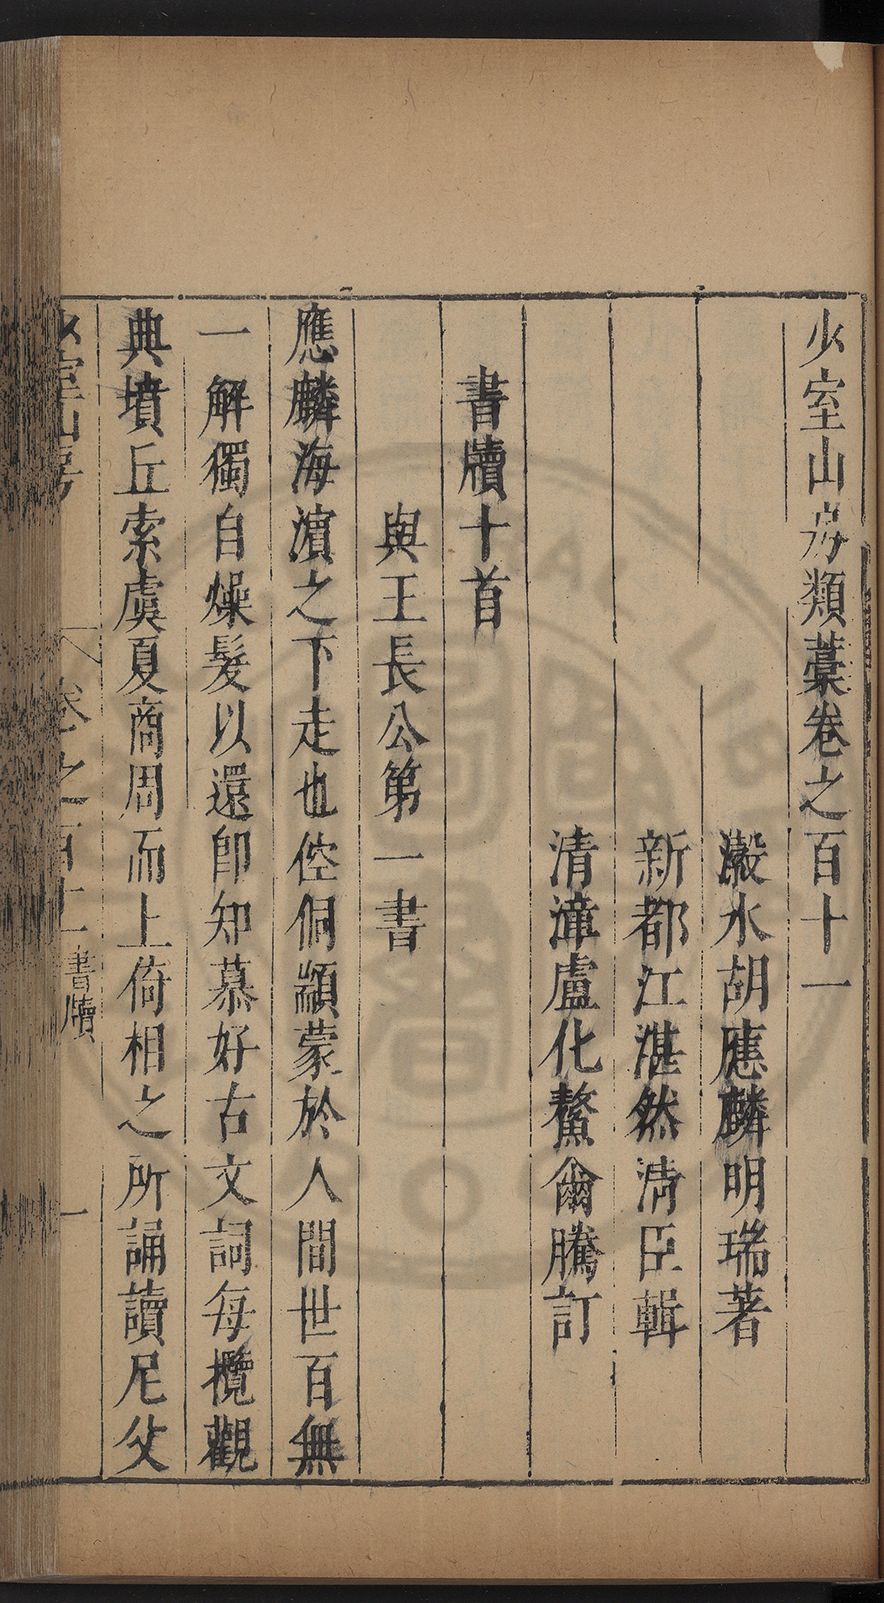 少室山房類藁卷之百十一
瀫水胡應麟明瑞著
新都江湛然清臣輯
清漳盧化鰲爾騰訂
書牘十首
與王長公第一書
應麟海濵之下走也倥侗顓蒙於人間世百無
一解獨自燥髮以還卽知慕好古文詞每攬觀
典墳丘索虞夏商周而上倚相之所誦讀尼父
少室山房 卷之百十一 書牘 一